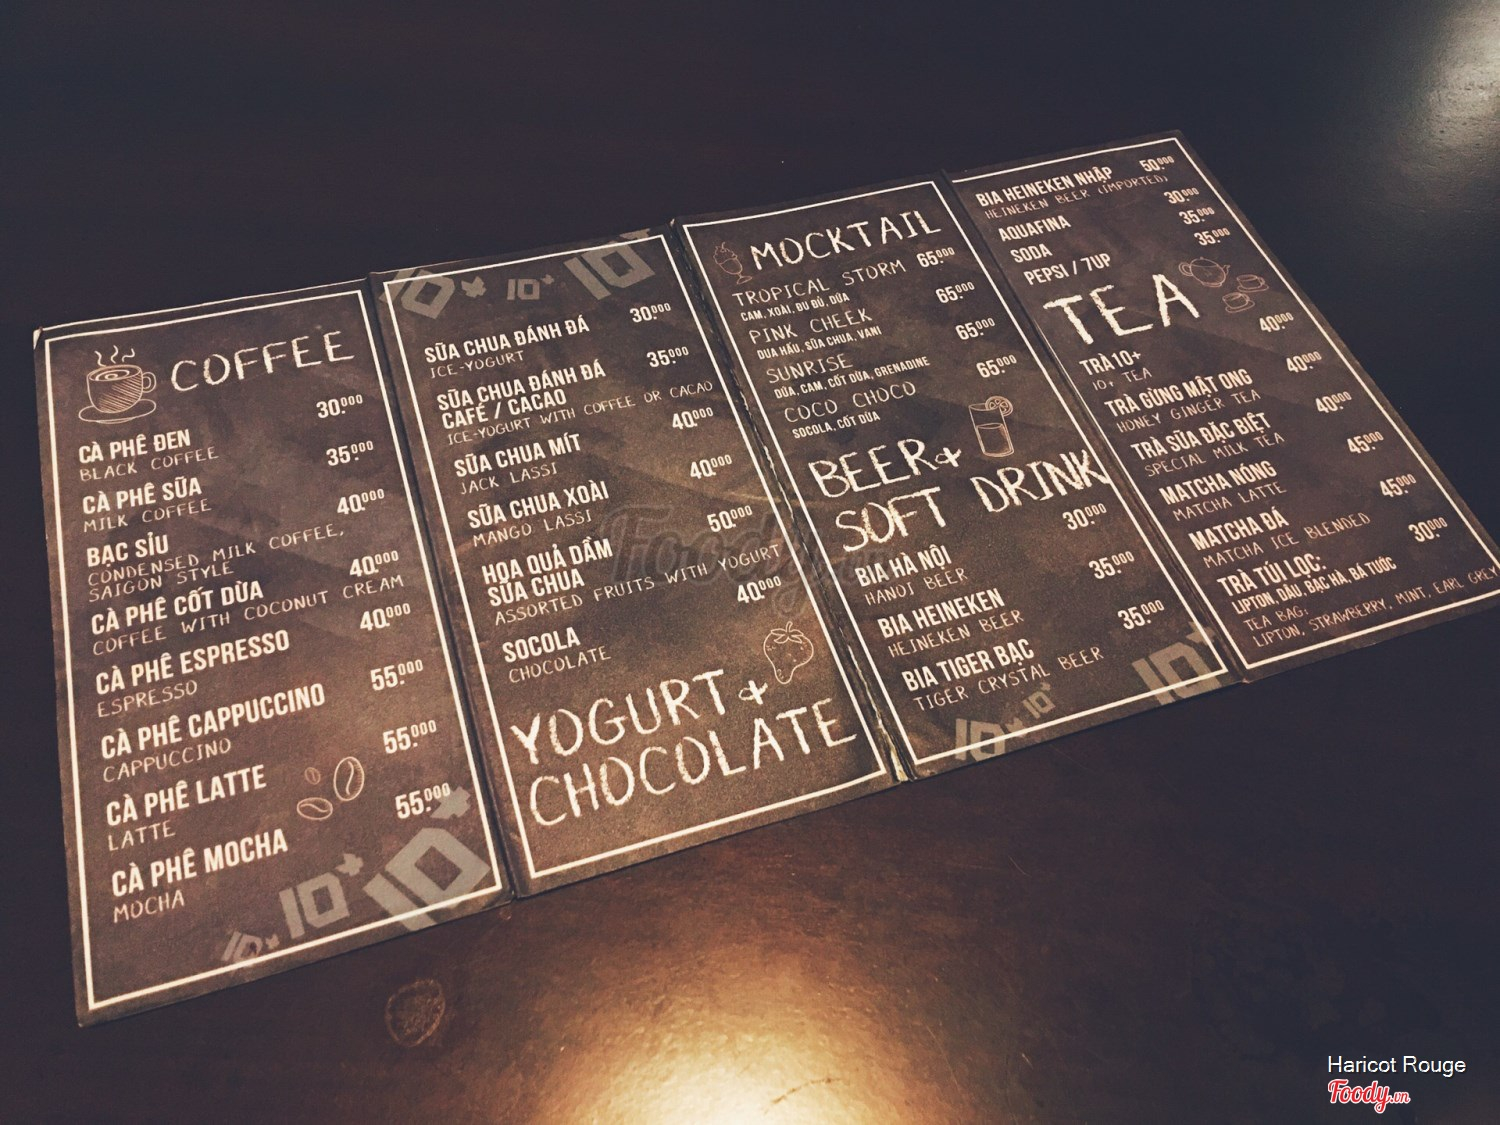 COFFEE
30.000
CÀ PHÊ ĐEN
BLACK COFFEE
35.000
CÀ PHÊ SỮA
MILK COFFEE
40.000
BẠC SỈU
CONDENSED MILK COFFEE,
SAIGON STYLE
40.000
CÀ PHÊ CỐT DỪA
COFFEE WITH COCONUT CREAM
40.000
CÀ PHÊ ESPRESSO
ESPRESSO
55.000
CÀ PHÊ CAPPUCCINO
CAPPUCCINO
55.000
CÀ PHÊ LATTE
LATTE
55.000
CÀ PHÊ MOCHA
MOCHA
10+
10+
10+
10+
10+
10+
30.000
SỮA CHUA ĐÁNH ĐÁ
ICE-YOGURT
35.000
SỮA CHUA ĐÁNH ĐÁ
CAFÉ / CACAO
ICE-YOGURT WITH COFFEE OR CACAO
40.000
SỮA CHUA MÍT
JACK LASSI
40.000
SỮA CHUA XOÀI
MANGO LASSI
50.000
HOA QUẢ DẦM
SỮA CHUA
ASSORTED FRUITS WITH YOGURT
40.000
SOCOLA
CHOCOLATE
YOGURT +
CHOCOLATE
MOCKTAIL
TROPICAL STORM 65.000
CAM, XOÀI, ĐU ĐỦ, DỨA
PINK CHEEK 65.000
DƯA HẤU, SỮA CHUA, VANI
SUNRISE 65.000
DỨA, CAM, CỐT DỪA, GRENADINE
COCO CHOCO 65.000
SOCOLA, CỐT DỪA
BEER+
SOFT DRINK
30.000
BIA HÀ NỘI
HANOI BEER
35.000
BIA HEINEKEN
HEINEKEN BEER
35.000
BIA TIGER BẠC
TIGER CRYSTAL BEER
10+
10+
10+
BIA HEINEKEN NHẬP 50.000
HEINEKEN BEER (IMPORTED)
AQUAFINA 30.000
SODA 35.000
PEPSI / 7UP 35.000
TEA
40.000
TRÀ 10+
10+ TEA
40.000
TRÀ GỪNG MẬT ONG
HONEY GINGER TEA
40.000
TRÀ SỮA ĐẶC BIỆT
SPECIAL MILK TEA
45.000
MATCHA NÓNG
MATCHA LATTE
45.000
MATCHA ĐÁ
MATCHA ICE BLENDED
30.000
TRÀ TÚI LỌC:
LIPTON, DÂU, BẠC HÀ, BÁ TƯỚC
TEA BAG:
LIPTON, STRAWBERRY, MINT, EARL GREY
Foody.vn
Haricot Rouge
Foody.vn